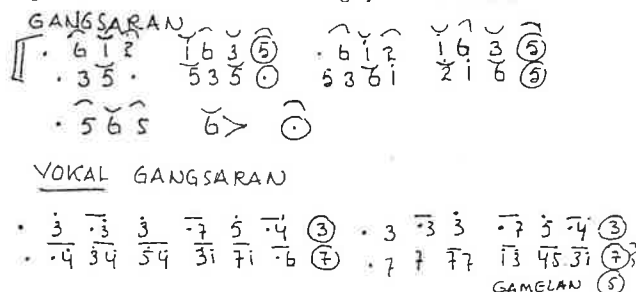 GANGSARAN
. 6 i 2 i 6 3 5 . 6 i 2 i 6 3 5
. 3 5 . 5 3 5 . 5 3 6 i 2 i 6 5
. 5 6 5 6 > .
VOKAL GANGSARAN
. 3 .3 3 .7 5 .4 3 . 3 .3 3 .7 5 .4 3
. .4 34 54 3i 7i .6 7 . 7 7 77 i3 45 3i 7
GAMELAN 5